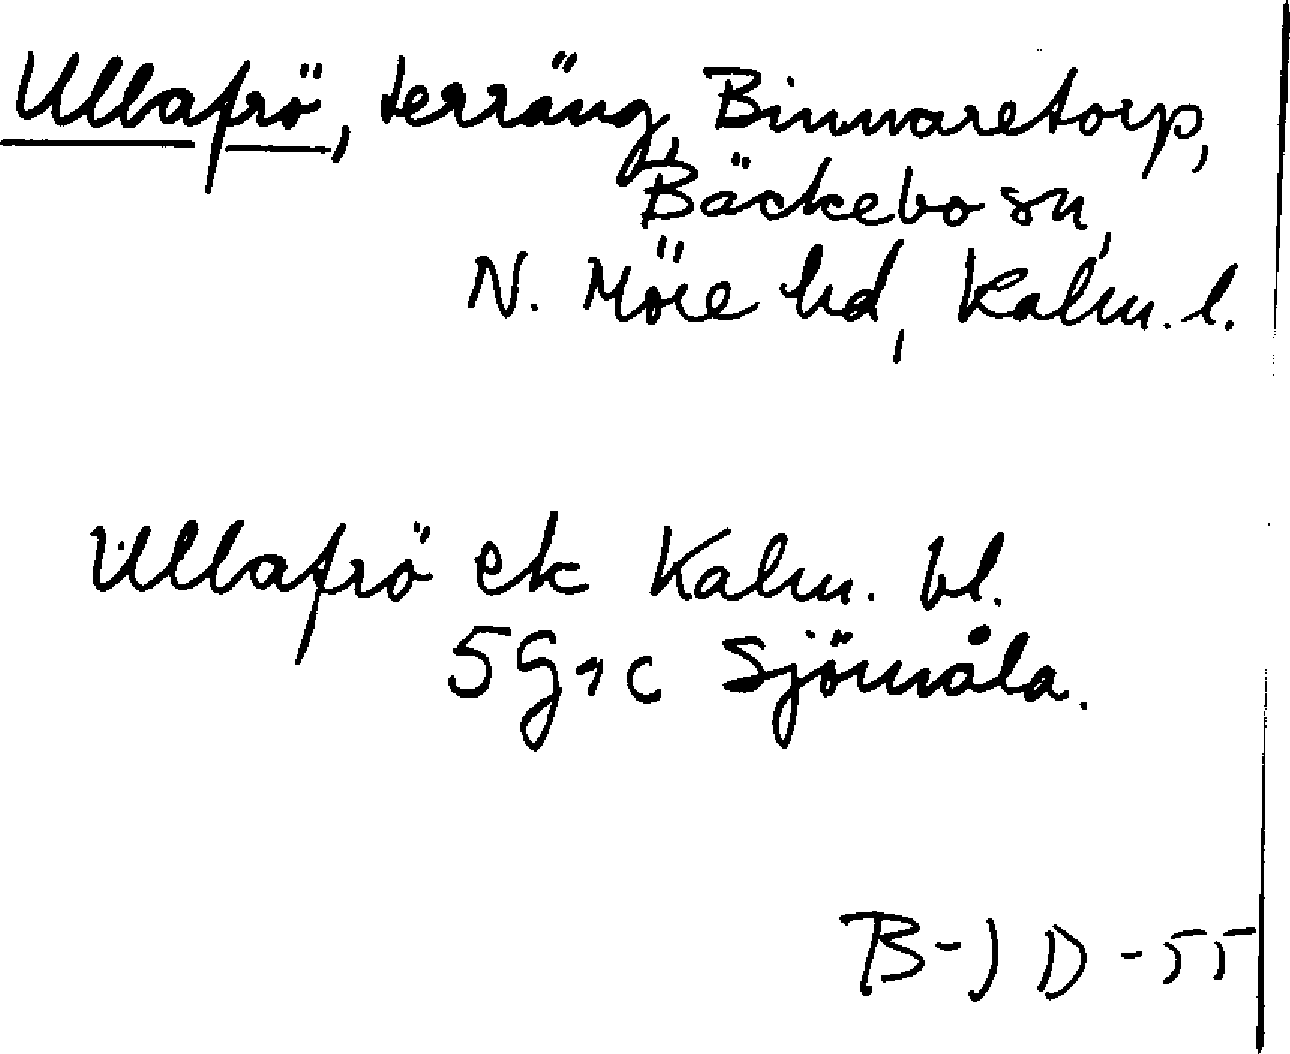 Ullafrö, terräng, Binnaretorp,
Bäckebo sn,
N. Möre hd, Kalm. l.
Ullafrö ek Kalm. bl.
5G1c Sjömåla.
B-J D -55